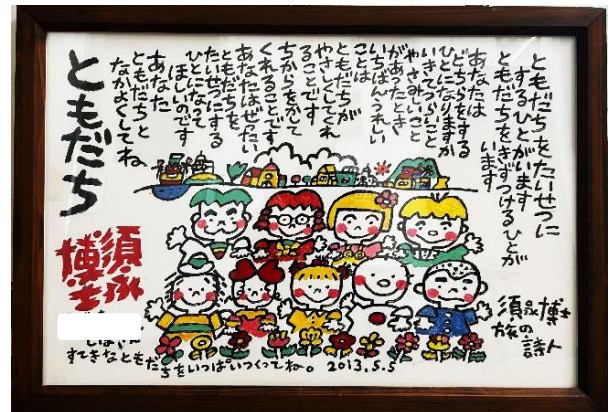 ともだちをたいせつに
するひとがいます
ともだちをきずつけるひとが
います
あなたは
どちらをする
ひとになりますか
いきてつらいこと
やさみしいこと
があったとき
いちばんうれしい
ことは
ともだちが
やさしくしてくれ
ることです
ちからをかして
くれることです
あなたはぜったい
ともだちを
たいせつにする
ひとになって
ほしいのです
あなた
ともだちと
なかよくしてね
ともだち
須永
博士
須永博士
旅の詩人
すてきなともだちをいっぱいつくってね。 2013.5.5